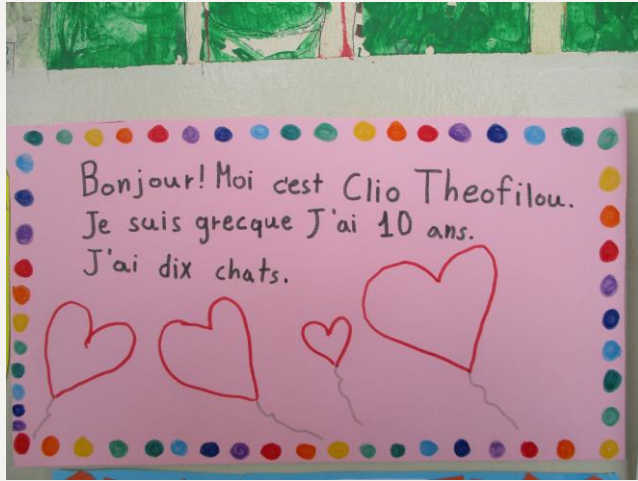 Bonjour! Moi c'est Clio Theofilou.
Je suis grecque J'ai 10 ans.
J'ai dix chats.